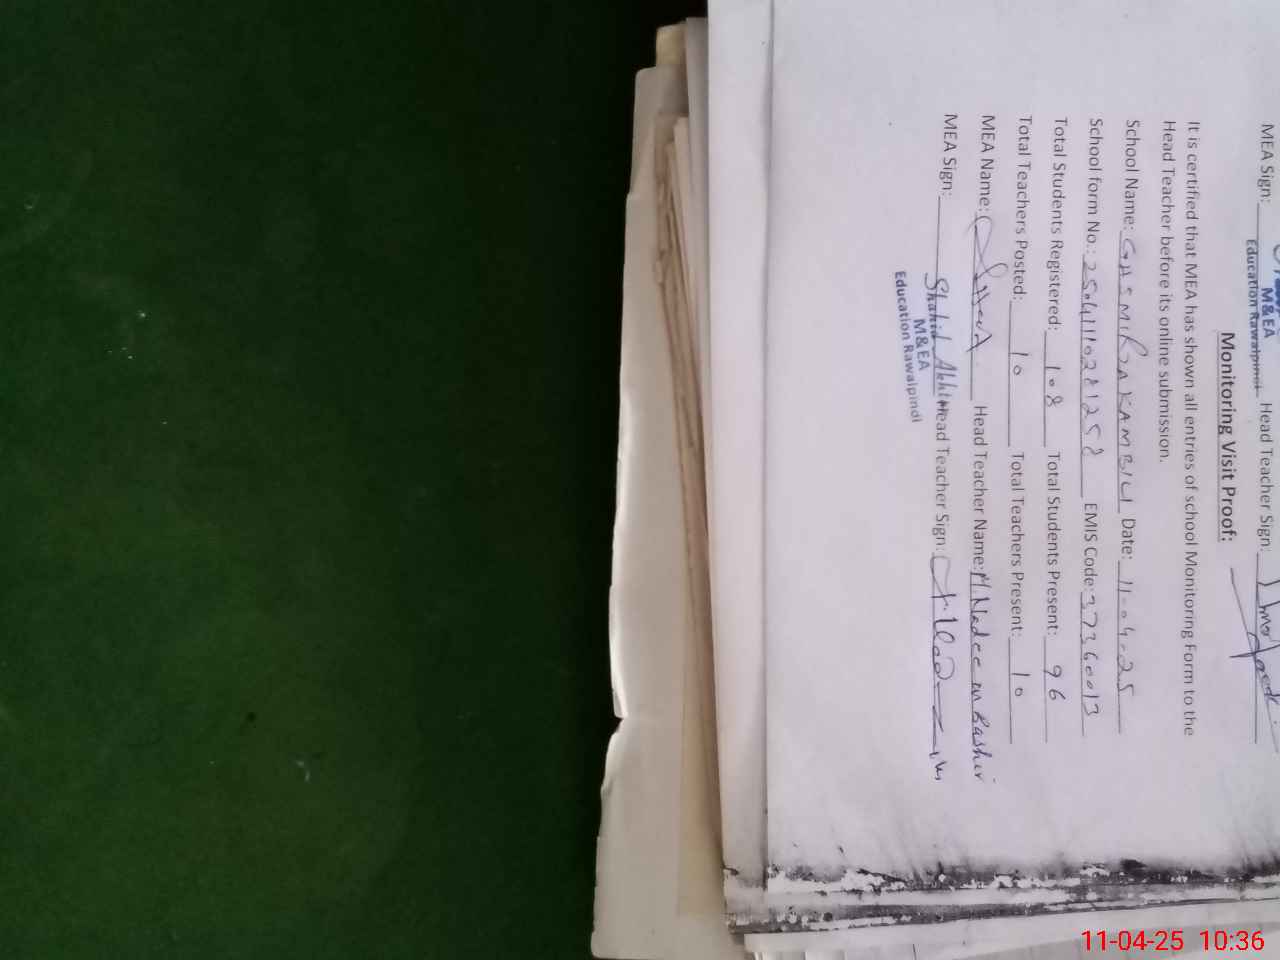 M&EA
MEA Sign: Head Teacher Sign:
Education Rawalpindi
Monitoring Visit Proof:
It is certified that MEA has shown all entries of school Monitoring Form to the
Head Teacher before its online submission.
School Name: GHS MIRZA KAMBILI Date: 11-04-25
School form No.: EMIS Code: 37360013
Total Students Registered: 108 Total Students Present: 96
Total Teachers Posted: 10 Total Teachers Present: 10
MEA Name: Head Teacher Name: M. Nadeem Bashir
MEA Sign: Shahid Akhtar Head Teacher Sign:
M&EA
Education Rawalpindi
11-04-25 10:36